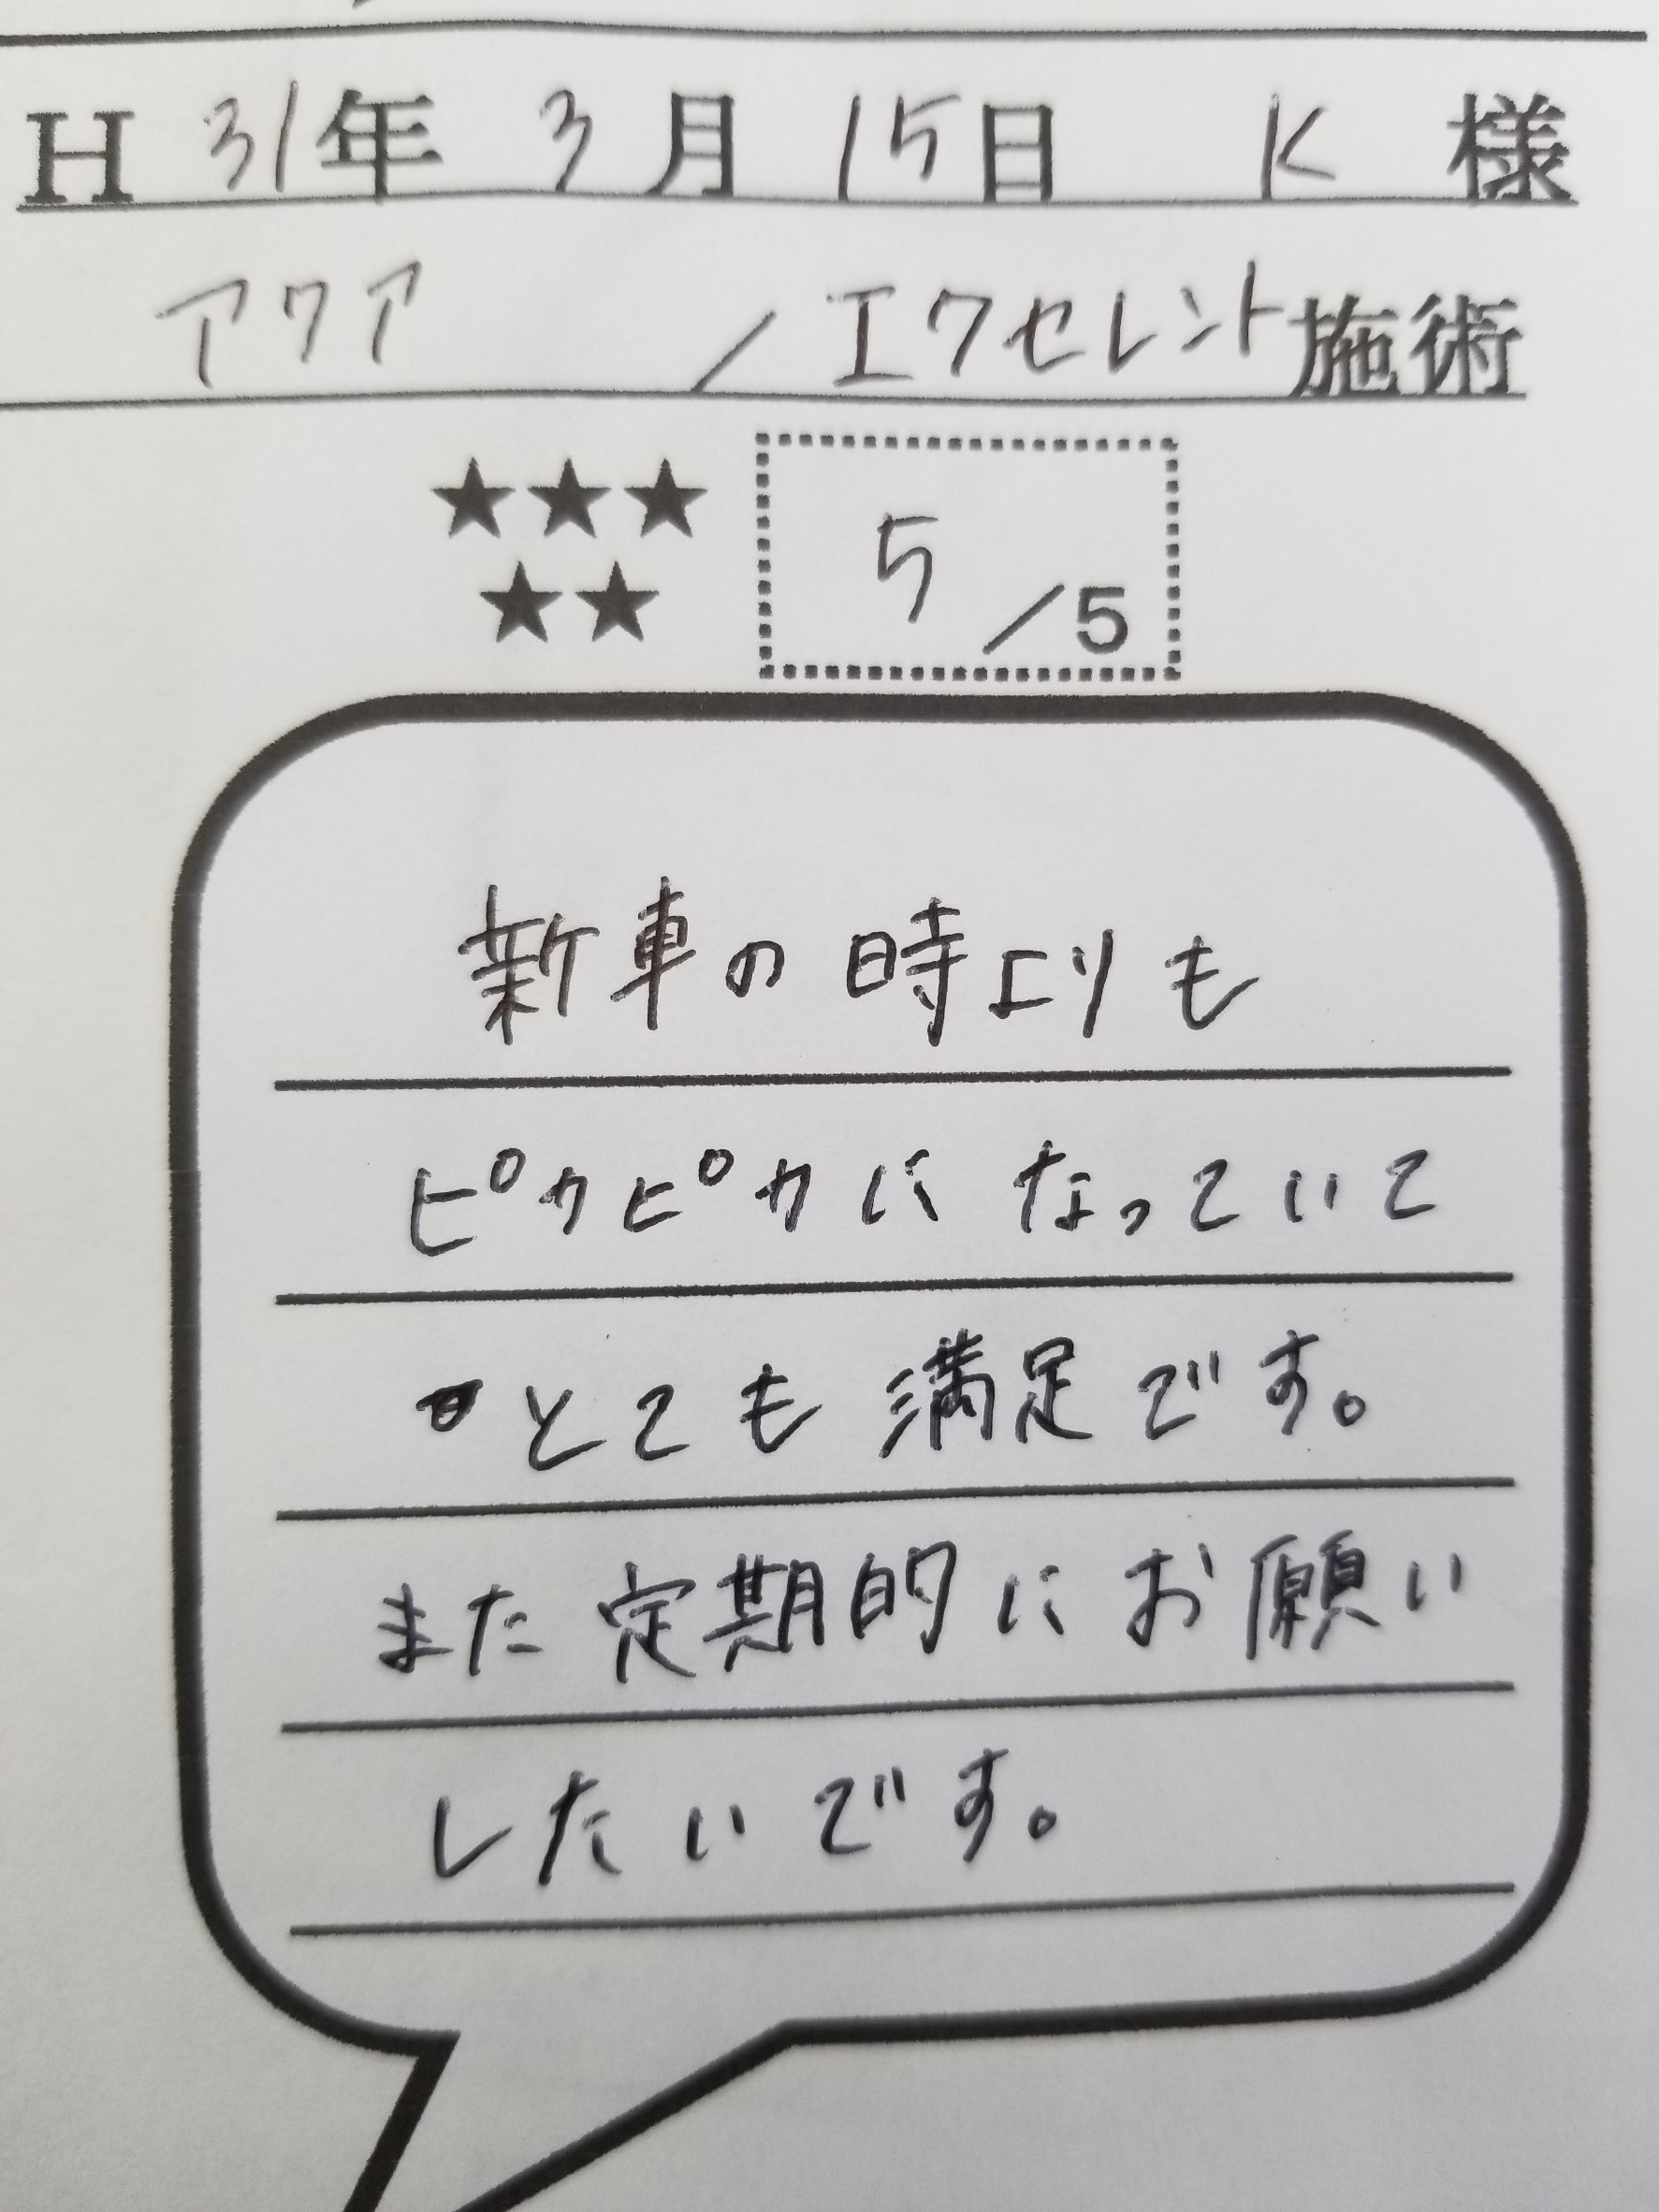 H 31年 3月 15日 K 様
アクア / エクセレント施術
★★★
★★
5/5
新車の時よりも
ピカピカになっていて
とても満足です。
また定期的にお願い
したいです。